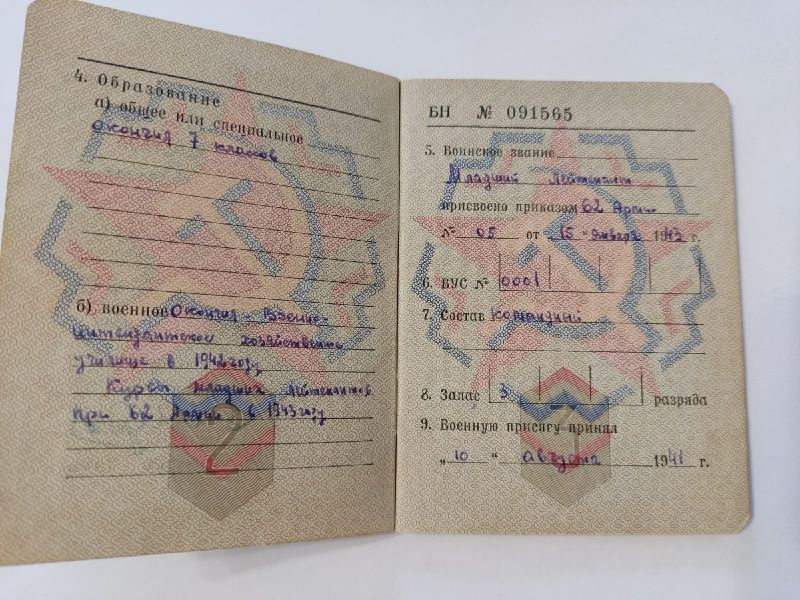 4. Образование
а) общее или специальное
Окончил 7 классов
б) военное Окончил - Военно-
интендантское хозяйственное
училище в 1942 году
Курсы младших лейтенантов
при 62 Армии в 1943 году
2
БН № 091565
5. Воинское звание
Младший Лейтенант
присвоено приказом 62 Армии
№ 05 от „15" Января 1943 г.
6. ВУС № 0001
7. Состав Командный
8. Запас 3 разряда
9. Военную присягу принял
„10" Августа 1941 г.